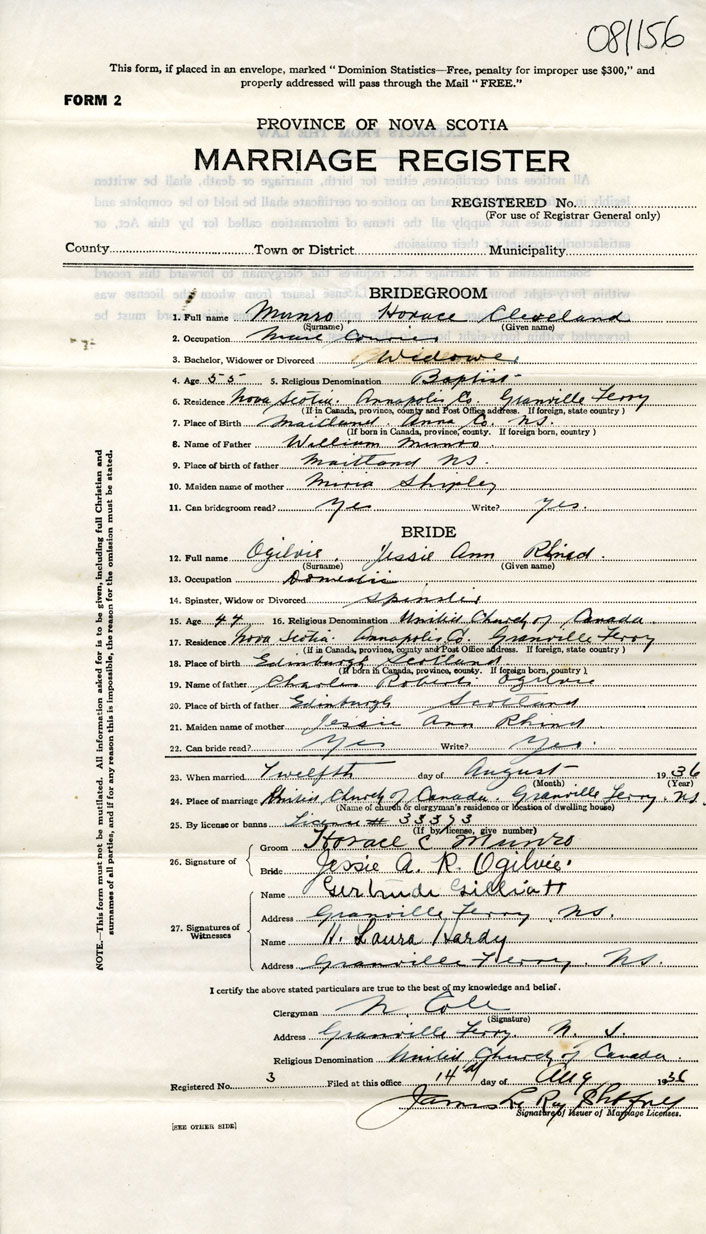 081156
This form, if placed in an envelope, marked "Dominion Statistics—Free, penalty for improper use $300," and
properly addressed will pass through the Mail "FREE."
FORM 2
PROVINCE OF NOVA SCOTIA
MARRIAGE REGISTER
REGISTERED No.
(For use of Registrar General only)
County Town or District Municipality
BRIDEGROOM
1. Full name Munro, Horace Cleveland
(Surname) (Given name)
2. Occupation Mail Courier
3. Bachelor, Widower or Divorced Widower
4. Age 55 5. Religious Denomination Baptist
6. Residence Nova Scotia. Annapolis Co. Granville Ferry
(If in Canada, province, county and Post Office address. If foreign, state country)
7. Place of Birth Maitland Anna Co. N.S.
(If born in Canada, province, county. If foreign born, country)
8. Name of Father William Munro
9. Place of birth of father Maitland NS.
10. Maiden name of mother Shipley
11. Can bridegroom read? Yes Write? Yes.
BRIDE
12. Full name Ogilvie, Jessie Ann Rhind.
(Surname) (Given name)
13. Occupation Domestic
14. Spinster, Widow or Divorced Spinster
15. Age 44 16. Religious Denomination United Church of Canada
17. Residence Nova Scotia. Annapolis Co. Granville Ferry
(if in Canada, province, county and Post Office address. If foreign, state country)
18. Place of birth Edinburgh Scotland
(If born in Canada, province, county. If foreign born, country)
19. Name of father Charles Roberts Ogilvie
20. Place of birth of father Edinburgh Scotland
21. Maiden name of mother Jessie Ann Rhind
22. Can bride read? Yes Write? Yes.
23. When married Twelfth day of August 1936
(Month) (Year)
24. Place of marriage United Church of Canada. Granville Ferry. N.S.
(Name of church or clergyman's residence or location of dwelling house)
25. By license or banns License # 33373
(If by license, give number)
26. Signature of Groom Horace C Munro
Bride Jessie A. R. Ogilvie.
27. Signatures of Witnesses
Name Gertrude Gilliatt
Address Granville Ferry NS.
Name H. Laura Hardy
Address Granville Ferry. NS.
I certify the above stated particulars are true to the best of my knowledge and belief.
Clergyman N. Cole
(Signature)
Address Granville Ferry N. S.
Religious Denomination United Church of Canada.
Registered No. 3 Filed at this office 14th day of Aug 1936
James Le Roy
Signature of Issuer of Marriage Licenses.
[SEE OTHER SIDE]
NOTE.—This form must not be mutilated. All information asked for is to be given, including full Christian and
surnames of all parties, and if for any reason this is impossible, the reason for the omission must be stated.